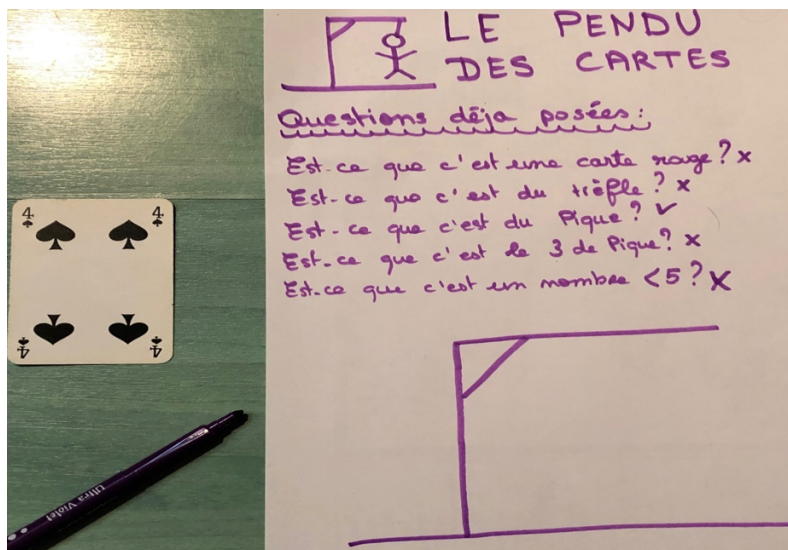 LE PENDU
DES CARTES
Questions déja posées :
Est-ce que c'est une carte rouge ? x
Est-ce que c'est du trèfle ? x
Est-ce que c'est du Pique ? ✓
Est-ce que c'est le 3 de Pique ? x
Est-ce que c'est un nombre < 5 ? X
4 4
4 4
Ultra Violet